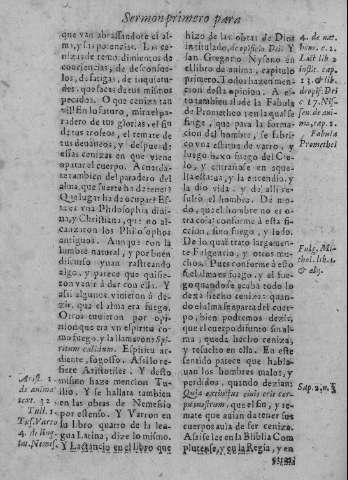 Sermon primero para
que van abrassandote el al-
ma, y las potencias. Las ce-
nizas de remordimientos de
conciencias, de desconsue-
los, de fatigas, de inquietu-
des, que sacas de tus mismos
pecados. O que ceniza tan
vil! En lo futuro, mira el pa-
radero de tus glorias, el fin
de tus trofeos, el remate de
tus devaneos, y despues de
essas cenizas en que viene
a parar el cuerpo. Acorda-
te tambien del paradero del
alma, que suerte ha de tener?
Que lugar ha de ocupar? Es-
ta es vna Philosophia divi-
na, y Christiana, que no al-
canzaron los Philosophos
antiguos. Aunque con la
lumbre natural, y por buen
discurso yuan rastreando
algo, y parece que quisie-
ron venir à dar con ella. Y
assi algunos vinieron à de-
zir, que el alma era fuego.
Otros tuvieron por opi-
nion que era vn espiritu co-
mo fuego, y la llamavan Spi-
ritum callidum. Espiritu ar-
diente, fogoso. Assi lo re-
fiere Aristoteles. Y desto
mismo haze mencion Tu-
lio. Y se hallara tambien
en las obras de Nemesio
por estenso. Y Varron en
su libro quarto de la len-
gua Latina, dize lo mismo.
Y Lactancio en el libro que
Arist. 1.
de anima
text. 32
Tull. 1.
Tus. Varro
4. de ling.
lat. Nemes.
hizo de las obras de Dios
intitulado, de opificio Dei. Y
San Gregorio Nyseno en
el libro de anima, capitulo
primero. Todos hazen men-
cion desta opinion. A es-
to tambien alude la Fabula
de Prometheo en la qual se
finge, que para la forma-
cion del hombre, se fabri-
cò vna estatua de varro, y
luego hazo fuego del Cie-
lo, y entrañose en aque-
lla estatua, y la encendio, y
la dio vida, y de alli re-
sulto el hombre. De mo-
do, que el hombre no es o-
tra cosa conforme à esta fic-
cion, sino fuego, y lodo.
De lo qual trato largamen-
te Fulgencio, y otros mu-
chos. Pues conforme à esto
si el alma es fuego, y el fue-
go quando se acaba todo lo
dexa hecho ceniza: quan-
do el alma se aparta del cuer-
po, bien podemos dezir,
que el cuerpo difunto sin al-
ma, queda hecho ceniza,
y resuelto en ella. En este
sentido parece que habla-
uan los hombres malos, y
perdidos, quando dezian:
Quia extinctus cinis erit cor-
pus nostrum, que el fin, y re-
mate que auian de tener sus
cuerpos auia de ser ceniza.
Assi se lee en la Biblia Com
plutense, y en la Regia, y en
4. de nat.
hom. c. 2.
Lact lib 2
instit. cap.
13. & lib.
de opif. Dei
c 17. Nis-
sen. de ani-
ma, cap. 1.
Fabula
Promethei
Fulg. Mi-
thol. lib. 2.
& alij.
Sap. 2, n. 3